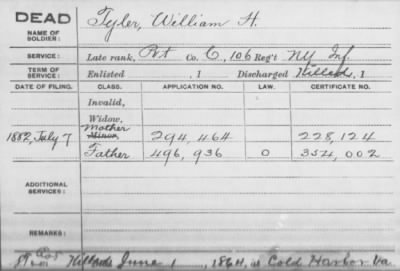 DEAD
NAME OF SOLDIER: Tyler, William H.
SERVICE: Late rank, Pvt Co. C, 106 Reg't NY Inf.
TERM OF SERVICE: Enlisted , 1 Discharged Killed, 1
DATE OF FILING. CLASS. APPLICATION NO. LAW. CERTIFICATE NO.
Invalid,
Widow,
Mother
1882, July 7 Minor, 294,464 228,124
Father 496,936 0 354,002
ADDITIONAL SERVICES:
REMARKS:
Killed June 1, 1864, at Cold Harbor Va